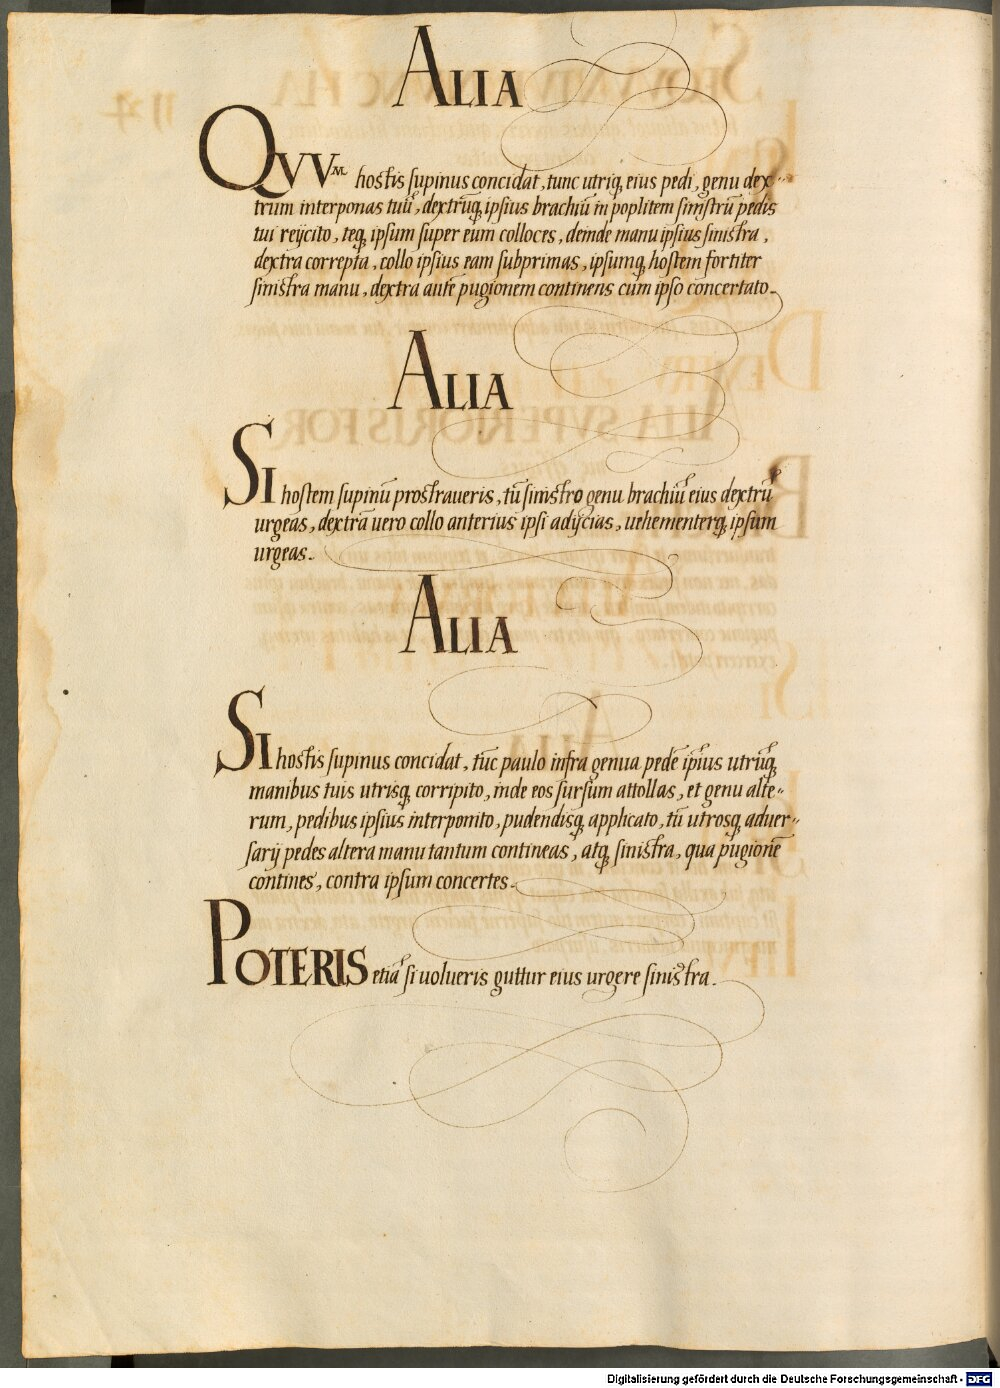 ALIA
QVVM hostis supinus concidat, tunc utriq; eius pedi, genu dex-
trum interponas tuũ, dextrũq; ipsius brachiũ in poplitem sinistrũ pedis
tui reijcito, teq; ipsum super eum colloces, deinde manu ipsius sinistra,
dextra correpta, collo ipsius eam subprimas, ipsumq; hostem fortiter
sinistra manu, dextra autẽ pugionem continens cum ipso concertato.
ALIA
SI hostem supinũ prostraueris, tũ sinistro genu brachiũ eius dextrũ
urgeas, dextrã uero collo anterius ipsi adijcias, uehementerq; ipsum
urgeas.
ALIA
SI hostis supinus concidat, tũc paulo infra genua pedẽ ipius utrũq;
manibus tuis utrisq; corripito, inde eos sursum attollas, et genu alte-
rum, pedibus ipsius interponito, pudendisq; applicato, tũ utrosq; aduer-
sarij pedes altera manu tantum contineas, atq; sinistra, qua pugionẽ
contines, contra ipsum concertes.
POTERIS etiã si uolueris guttur eius urgere sinistra.
Digitalisierung gefördert durch die Deutsche Forschungsgemeinschaft - DFG